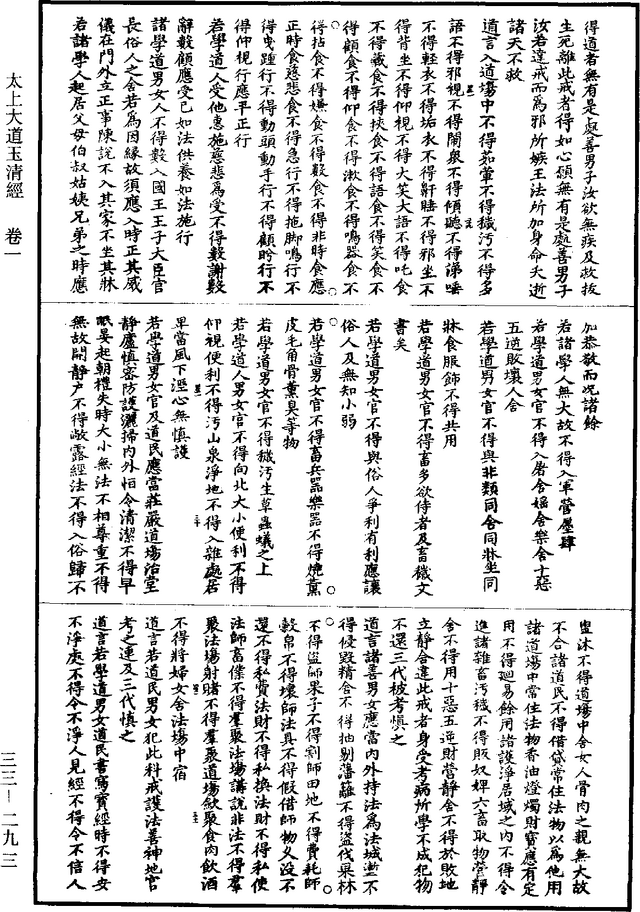 得道者無有是處善男子汝欲無疾及救拔
生死離此戒者得如心願無有是處善男子
汝若違戒而為邪所嫉王法所加身命夭逝
諸天不救
道言入道場中不得茹葷不得穢污不得多
語不得邪視不得鬧眾不得傾聽不得涕唾
不得輕衣不得垢衣不得鼾睡不得邪坐不
得背坐不得仰視不得大笑大語不得吒食
不得藏食不得挾食不得語食不得笑食不
得顧食不得仰食不得漱食不得鳴器食不
得拈食不得嫌食不得數食不得非時食應
正時食慈悲食不得急行不得拖腳鳴行不
得曳踵行不得動頭動手行不得顧盻行不
得仰視行應平正行
若學道人受他惠施慈悲為受不得數謝數
辭數顧應受己如法供養如法施行
諸學道男女人不得數入國王王子大臣官
長俗人之舍若為因緣故須應入時正其威
儀在門外立正事陳說不入其家不坐其牀
若諸學人起居父母伯叔姑姨兄弟之時應
加恭敬而況諸餘
若諸學人無大故不得入軍營壘肆
若學道男女官不得入屠舍婬舍樂舍十惡
五逆敗壞人舍
若學道男女官不得與非類同舍同牀坐同
牀食服飾不得共用
若學道男女官不得畜多欲侍者及畜穢文
書矣
若學道男女官不得與俗人爭利有利應讓
俗人及無知小弱
若學道男女官不得畜兵器樂器不得燒薰
皮毛角骨薰臭等物
若學道男女官不得穢污生草蟲蟻之上
若學道人男女官不得向北大小便利不得
仰視便利不得污山泉淨地不得入雜處居
卑當風下溺心無慎護
若學道男女官及道民應當莊嚴道場治堂
靜廬慎密防護灑掃內外恒令清潔不得早
眠晏起朝禮失時大小無法不相尊重不得
無故開靜戶不得敞露經法不得入俗歸不
盥沐不得道場中舍女人骨肉之親無大故
不合諸道民不得借貸常住法物以為他用
諸道場中常住法物香油燈燭財寶應有定
用不得迴易餘用諸護淨居域之內不得令
進諸雜畜汚穢不得販奴婢六畜取物營靜
舍不得用十惡五逆財營靜舍不得於敗地
立靜合違此戒者身受考病所學不成犯物
不還三代被考慎之
道言諸善男女應當內外持法為法城壍不
得侵毀精舍不得抽剔藩籬不得盜伐果林
不得盜師果子不得割師田地不得費耗師
穀帛不得壞師法具不得假借師物久没不
還不得私費法財不得私換法財不得私使
法師畜僕不得羣聚法場講說非法不得羣
聚法場射賭不得羣聚道場飲聚食肉飲酒
不得將婦女舍法場中宿
道言若道民男女犯此科戒護法善神地官
考之連及三代慎之
道言若學道男女道民書寫寶經時不得安
不淨處不得令不淨人見經不得令不信人
太上大道玉清經 卷一
三三—二九三